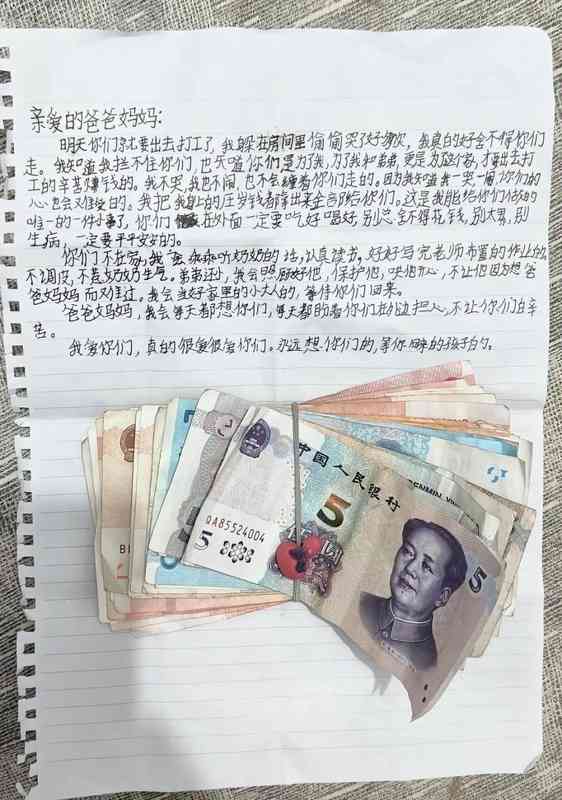 亲爱的爸爸妈妈:
明天你们就要出去打工了,我躲在房间里偷偷哭了好多次,我真的好舍不得你们
走。我知道我拦不住你们,也知道你们是为了我,为了我和弟弟,更是为这个家,才要出去打
工的辛苦赚钱的。我不哭,我也不闹,也不会缠着你们走的。因为我知道我一哭一闹,你们的
心也会难受的。我把我的压岁钱都拿出来全部给你们。这是我能给你们做的
唯一的一件小事了,你们在外面一定要吃好喝好,别舍不得花钱,别太累,别
生病,一定要平平安安的。
你们不在家,我会乖乖听奶奶的话,认真读书,好好写完老师布置的作业
不调皮,不惹奶奶生气。弟弟还小,我会照顾好他,保护他,哄他开心,不让他因为想爸
爸妈妈而难过。我会当好家里的小大人的,等待你们回来。
爸爸妈妈,我会每天都想你们,每天都盼着你们在身边,不让你们白辛
苦。
我爱你们,真的很爱很爱你们。永远想你们的,等你们回来的孩子的。
中国人民银行
5
QA85524004
5
5